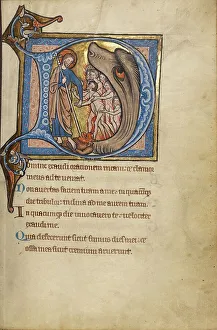 Domine exaudi orationem meam: et clamor
meus ad te veniat.
Non avertas faciem tuam a me: in quacumq;
die tribulor inclina ad me aurem tuam.
In quacumq; die invocavero te: velociter
exaudi me.
Quia defecerunt sicut fumus dies mei: et
ossa mea sicut cremium aruerunt.